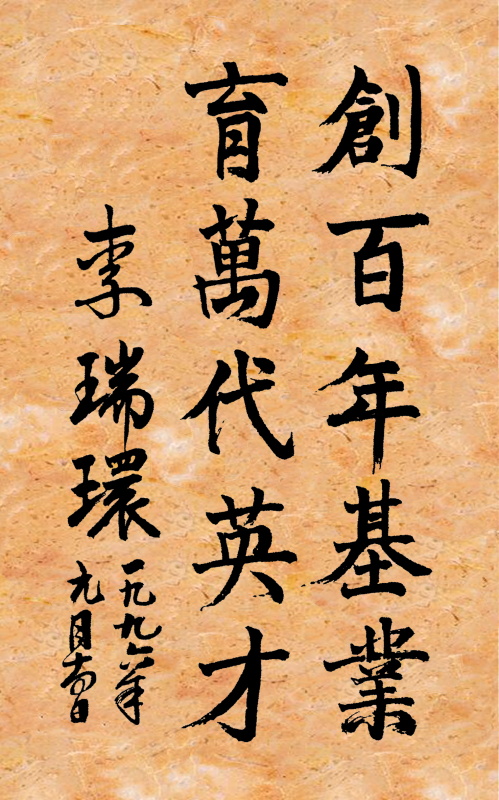 創百年基業
育萬代英才
李瑞環
一九九六年
九月十四日